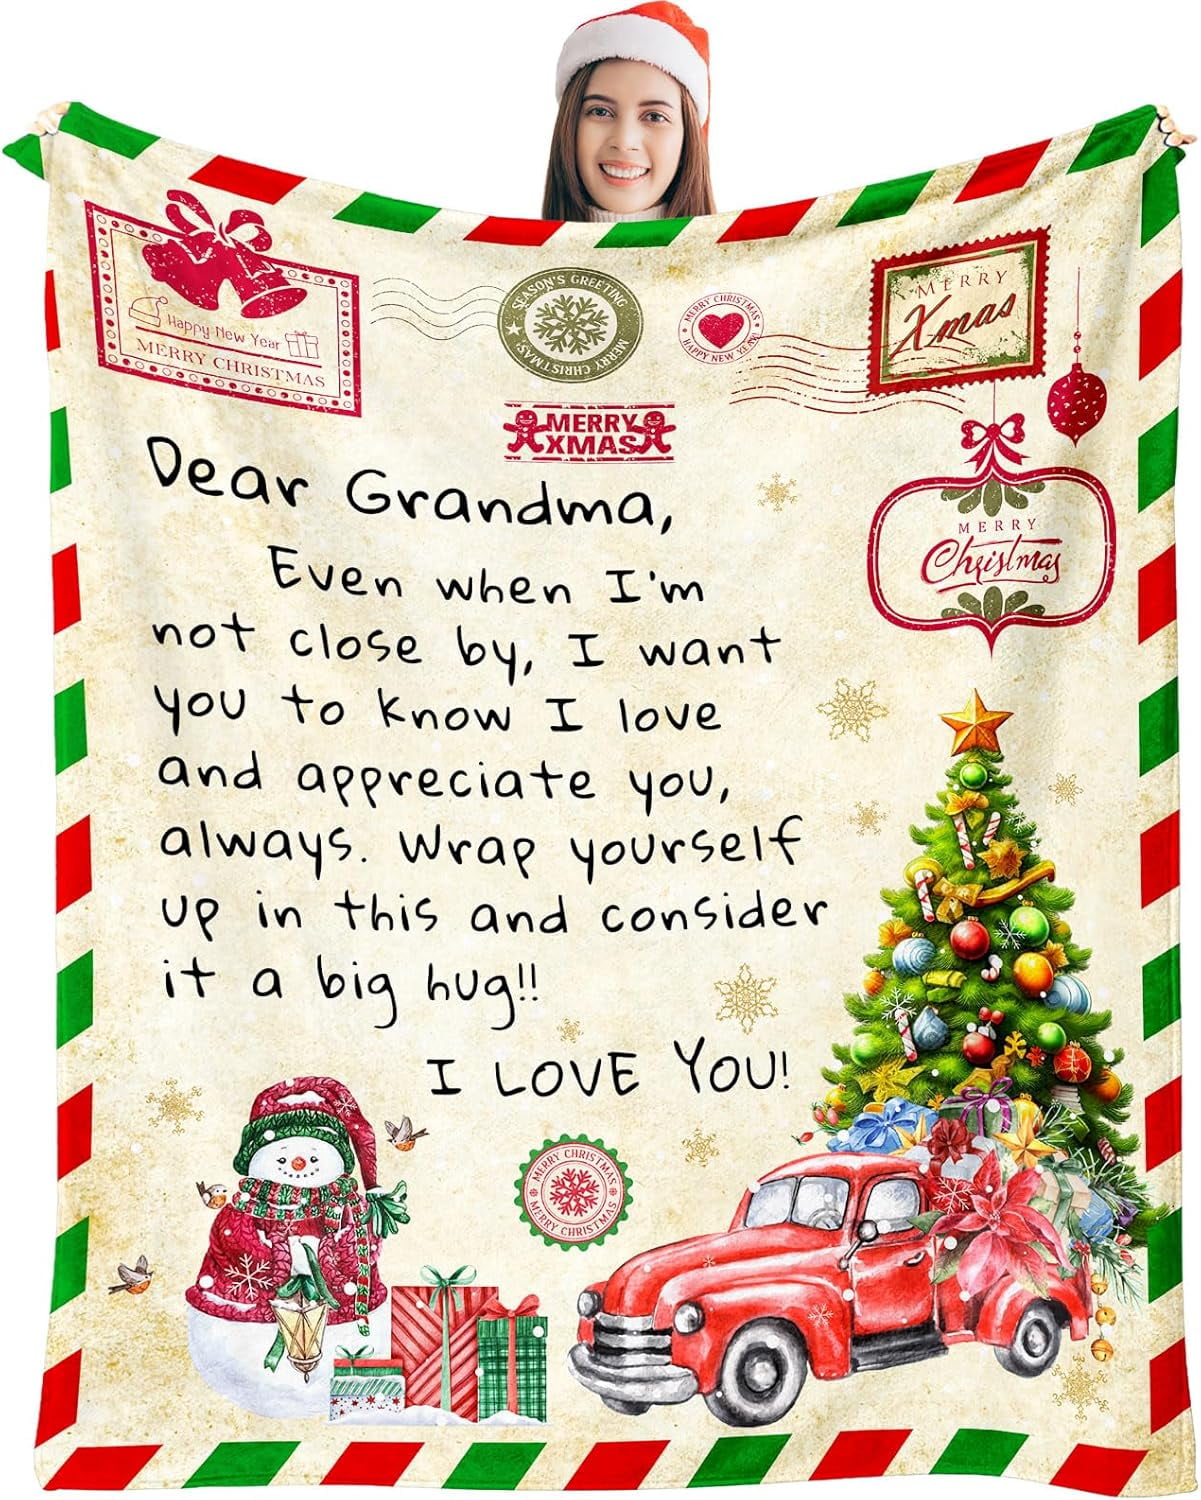 Happy New Year
MERRY CHRISTMAS
SEASON'S GREETING
MERRY CHRISTMAS
MERRY CHRISTMAS
HAPPY NEW YEAR
MERRY
Xmas
MERRY
XMAS
MERRY
Christmas
Dear Grandma,
Even when I'm
not close by, I want
you to know I love
and appreciate you,
always. Wrap yourself
up in this and consider
it a big hug!!
I LOVE YOU!
MERRY CHRISTMAS
MERRY CHRISTMAS